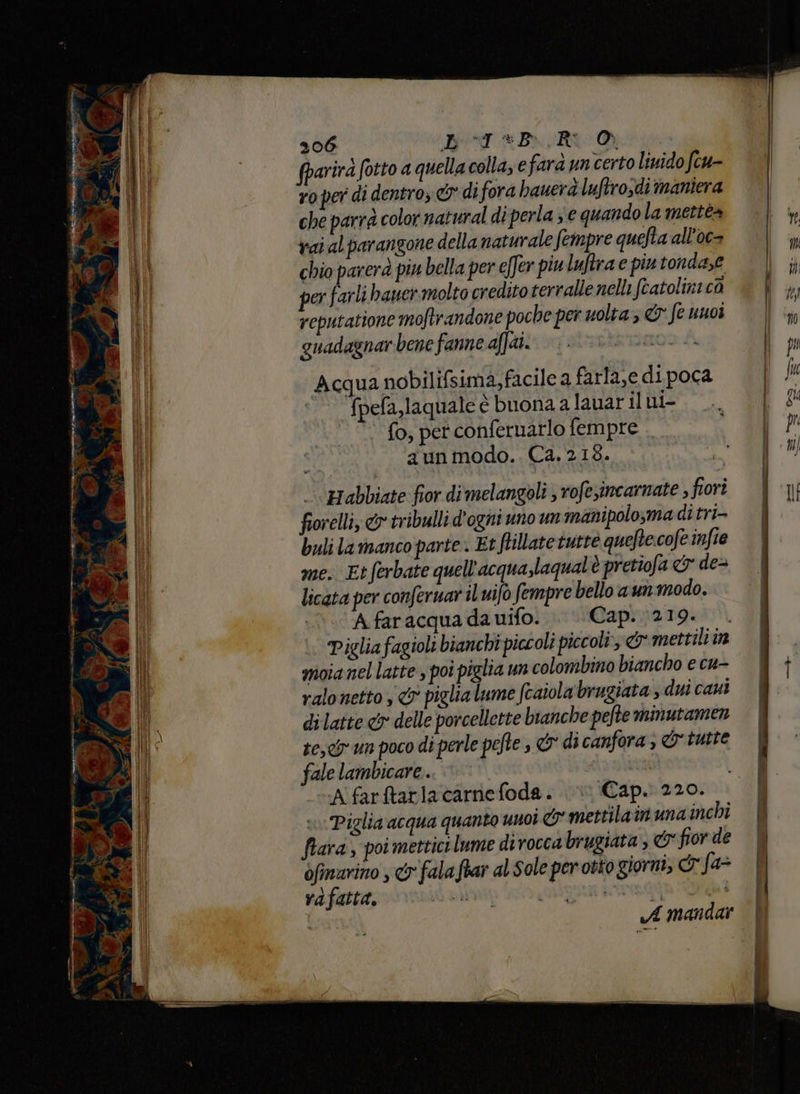 206 L I B R O
ſparirà ſotto a quella colla, e farà un certo liuido ſcu-
ro per di dentro, & di fora hauerà luſtro, di maniera
che parrà color natural di perla, e quando la mette-
rai al parangone della naturale ſempre queſta all'oc-
chio parerà piu bella per eſſer piu luſtra e piu tonda, e
per farli hauer molto credito terralle nelli ſcatolini cō
reputatione moſtrandone poche per uolta, & ſe uuoi
guadagnar bene fanne aſſai.
Acqua nobiliſsima, facile a farla, e di poca
ſpeſa, laquale è buona a lauar il ui-
ſo, per conſeruarlo ſempre
a un modo. Ca. 218.
Habbiate fior di melangoli, roſe, incarnate, fiori
fiorelli, & tribulli d'ogni uno un manipolo, ma di tri-
buli la manco parte. Et ſtillate tutte queſte coſe inſie
me. Et ſerbate quell'acqua, laqual è pretioſa & de-
licata per conſeruar il uiſo ſempre bello a un modo.
A far acqua da uiſo. Cap. 219.
Piglia fagioli bianchi piccoli piccoli, & mettili in
moia nel latte, poi piglia un colombino biancho e cu-
ralo netto, & piglia lume ſcaiola brugiata, dui caui
di latte & delle porcellette bianche peſte minutamen
te, & un poco di perle peſte, & di canfora, & tutte
fale lambicare.
A far ſtar la carne ſoda. Cap. 220.
Piglia acqua quanto uuoi & mettila in una inchi
ſtara, poi mettici lume di rocca brugiata, & fior de
oſmarino, & fala ſtar al Sole per otto giorni, & ſa-
rà fatta.
A mandar